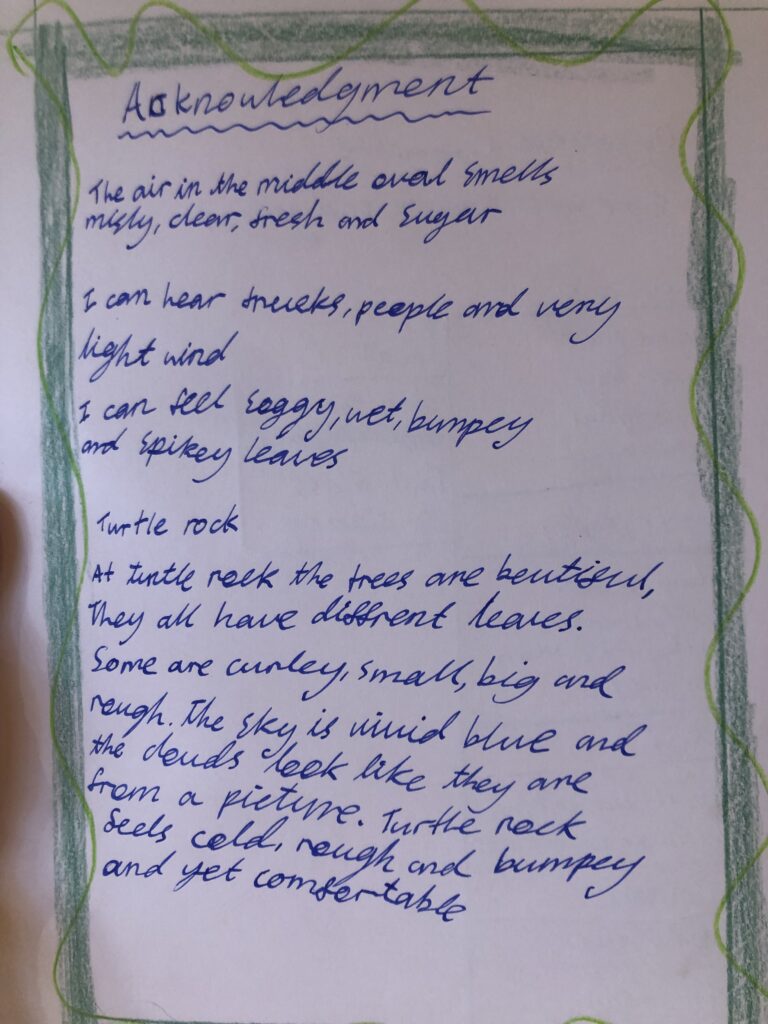 Acknowledgment
The air in the middle oval smells
misty, clear, fresh and sugar
I can hear trucks, people and very
light wind
I can feel soggy, wet, bumpey
and spikey leaves
Turtle rock
At turtle rock the trees are beutiful,
They all have diffrent leaves.
Some are curley, small, big and
rough. The sky is vivid blue and
the clouds look like they are
from a picture. Turtle rock
feels cold, rough and bumpey
and yet comfortable